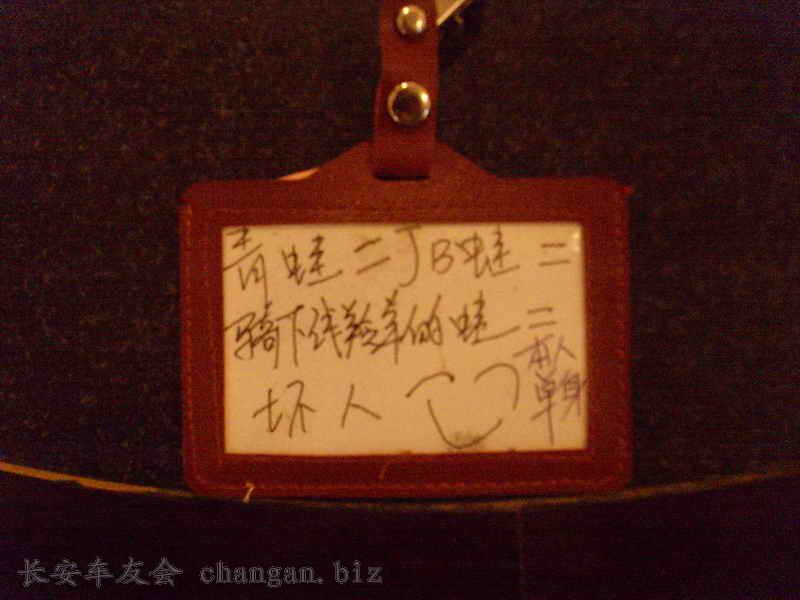 青蛙=JB蛙=
骑下线羚羊的蛙=
坏人
本人
单身
长安车友会 changan.biz